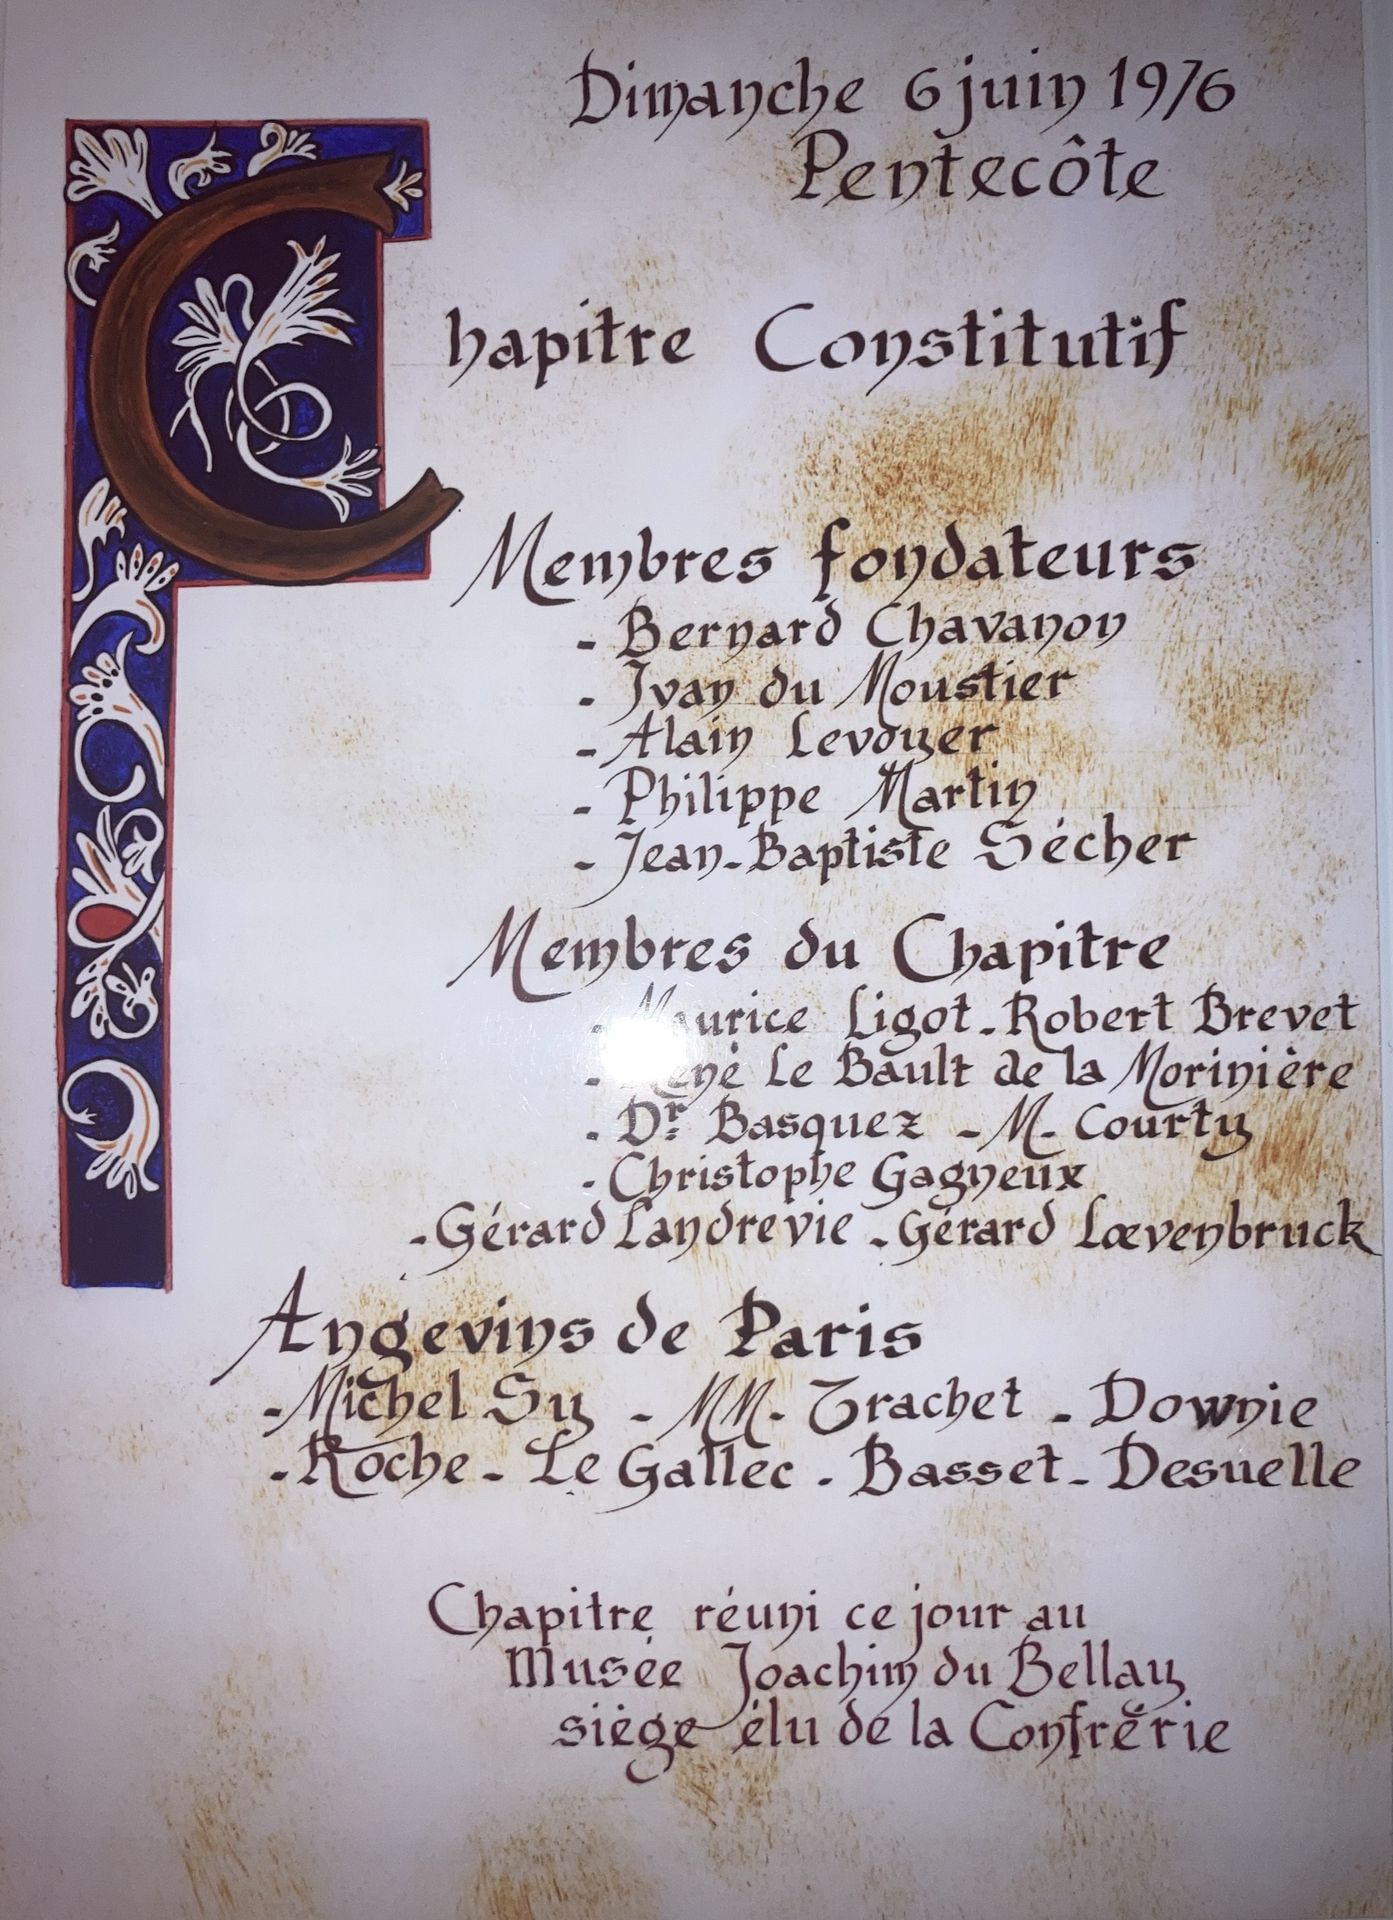 Dimanche 6 juin 1976
Pentecôte
Chapitre Constitutif
Membres fondateurs
- Bernard Chavanon
- Ivan du Moustier
- Alain Levoyer
- Philippe Martin
- Jean-Baptiste Sécher
Membres du Chapitre
- Maurice Ligot - Robert Brevet
- René Le Bault de la Morinière
- Dr. Basquez - M. Courty
- Christophe Gagneux
- Gérard Landrevie - Gérard Lœvenbruck
Angevins de Paris
- Michel Sy - MM. Trachet - Downie
- Roche - Le Gallec - Basset - Desuelle
Chapitre réuni ce jour au
Musée Joachim du Bellay
siège élu de la Confrèrie